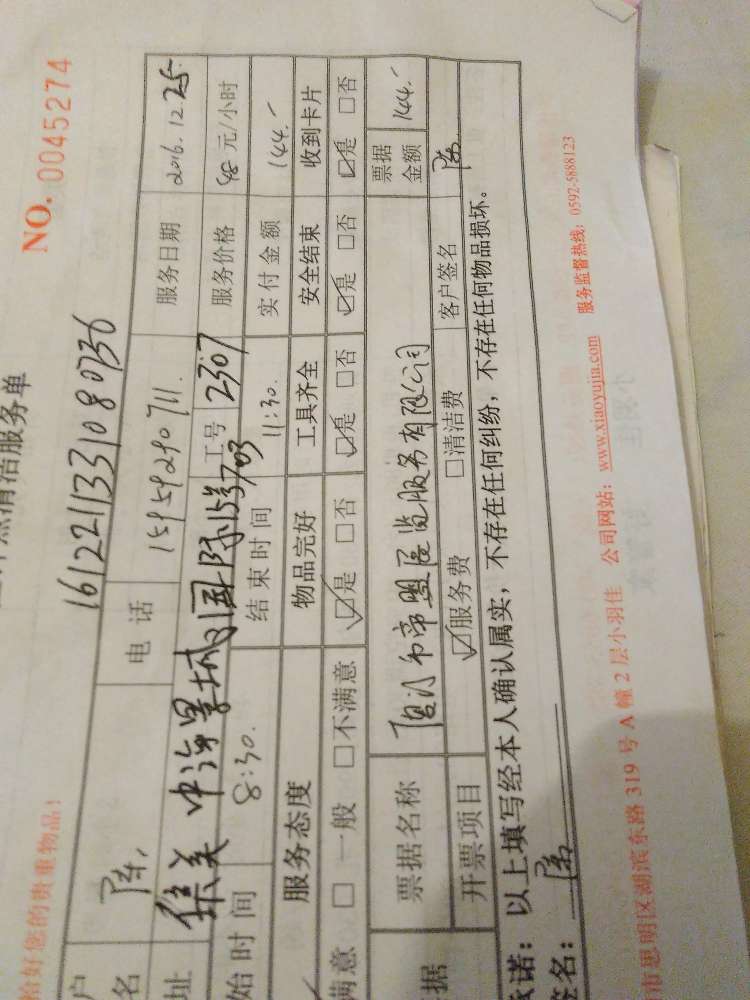 洁服务单 NO. 0045274
恰好您的贵重物品!
1612211331080736
户名 陈, 电话 15959290711. 服务日期 2016.12.25
址 集美 中海景城国际 工号 2307 服务价格 48 元/小时
始时间 8:30. 结束时间 11:30. 实付金额 144.
服务态度 物品完好 工具齐全 安全结束 收到卡片
满意 □ 一般 □ 不满意 ☑是 □否 ☑是 □否 ☑是 □否 ☑是 □否
据 票据名称 厦门市帝盟医监服务有限公司 票据金额 144.
开票项目 ☑服务费 □清洁费 客户签名 陈
诺:以上填写经本人确认属实,不存在任何纠纷,不存在任何物品损坏。
签名: 陈
市思明区湖滨东路 319 号 A 幢 2 层小羽佳 公司网站: www.xiaoyujia.com 服务监督热线: 0592-5888123